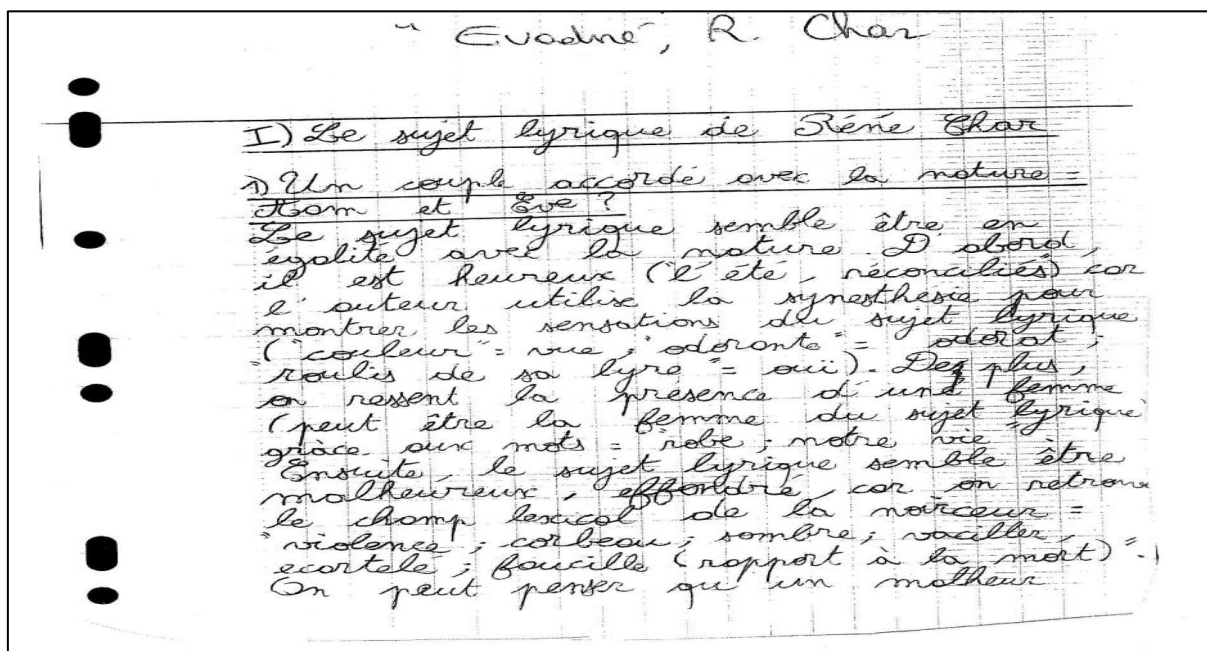 " Evadné", R. Char
I) Le sujet lyrique de René Char
1) Un couple accordé avec la nature =
Adam et Eve ?
Le sujet lyrique semble être en
égalité avec la nature. D'abord,
il est heureux ("l'été, réconciliés) car
l'auteur utilise la synesthésie pour
montrer les sensations du sujet lyrique
("couleur" = vue ; "odorante" = odorat ;
"roulis de sa lyre" = ouï). De plus,
on ressent la présence d'une femme
(peut être la femme du sujet lyrique
grâce aux mots = "robe ; notre vie"
Ensuite, le sujet lyrique semble être
malheureux, effondré, car on retrouve
le champ lexical de la noirceur =
"violence ; corbeau ; sombre ; vaciller,
ecartele ; faucille (rapport à la mort)".
On peut penser qu'un malheur